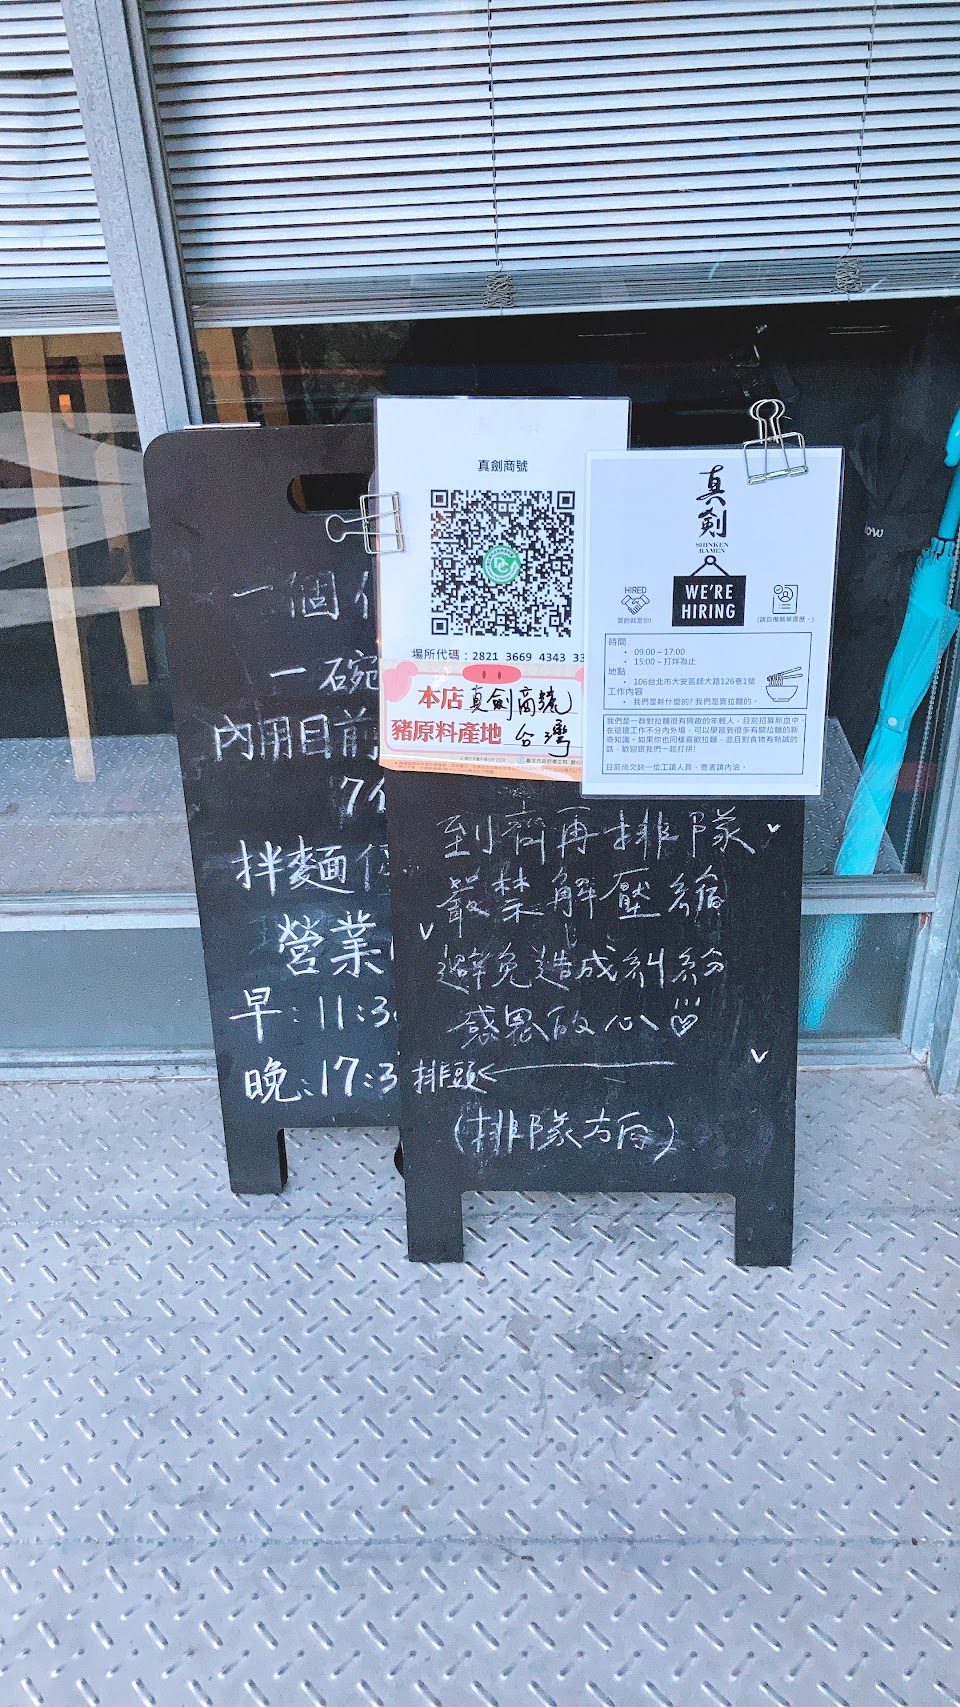 一個
一碗
內用目前
7
拌麵
營業
早：11:3
晚：17:3
真劍商號
場所代碼：2821 3669 4343 33
本店 真劍商號
豬原料產地 台灣
真劍
SHINKEN
RAMEN
HIRED
要的就是你!
WE'RE
HIRING
(請自備簡單履歷。)
時間
• 09:00 – 17:00
• 15:00 – 打烊為止
地點
• 106台北市大安區師大路126巷1號
工作內容
• 我們是幹什麼的? 我們是賣拉麵的。
我們是一群對拉麵很有興趣的年輕人，目前招募新血中，
在這邊工作不分內外場，可以學習到很多有關拉麵的新
奇知識。如果你也同樣喜歡拉麵，並且對食物有熱誠的
話，歡迎跟我們一起打拼!
目前尚欠缺一位工讀人員，意者請內洽。
到齊再排隊
嚴禁解壓縮
避免造成糾紛
感恩放心
排頭←
(排隊方向)